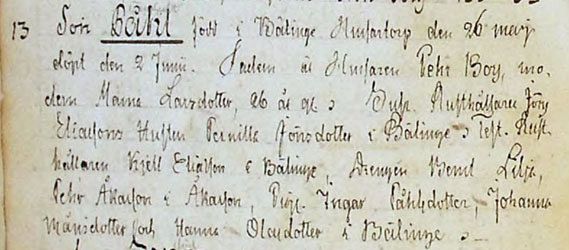 13 Son Påhl född i Bälinge Husartorp den 26 maij
döpt den 2 Junii. Fadern är Husaren Pehr Boy, mo-
dern Marna Larsdotter, 26 år gl. Susc. Rusthållaren Jöns
Eliasons Hustru Pernilla Jönsdotter i Bälinge; Test. Rust-
hållaren Kjell Eliasson i Bälinge, Drengen Bernt Lilja,
Pehr Åkason i Åkarp, Pig. Ingar Påhlsdotter, Johanna
Månsdotter och Hanna Olasdotter i Bälinge